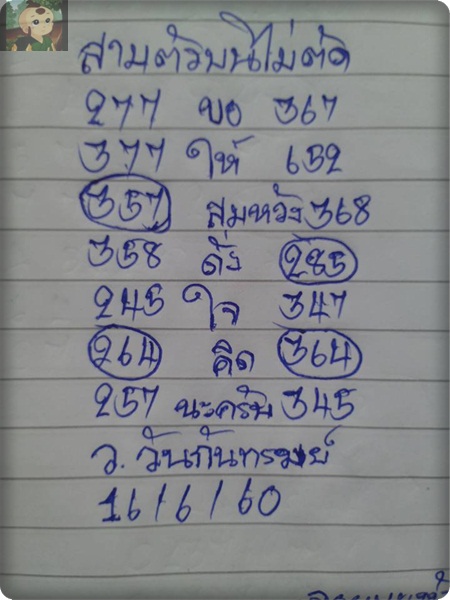 สามตัวบนไม่ตัด
277 ขอ 367
377 ให้ 652
357 สมหวัง 368
358 ดั่ง 285
245 ใจ 347
264 คิด 364
257 นะครับ 345
ว. วันกันทรมย์
16/6/60